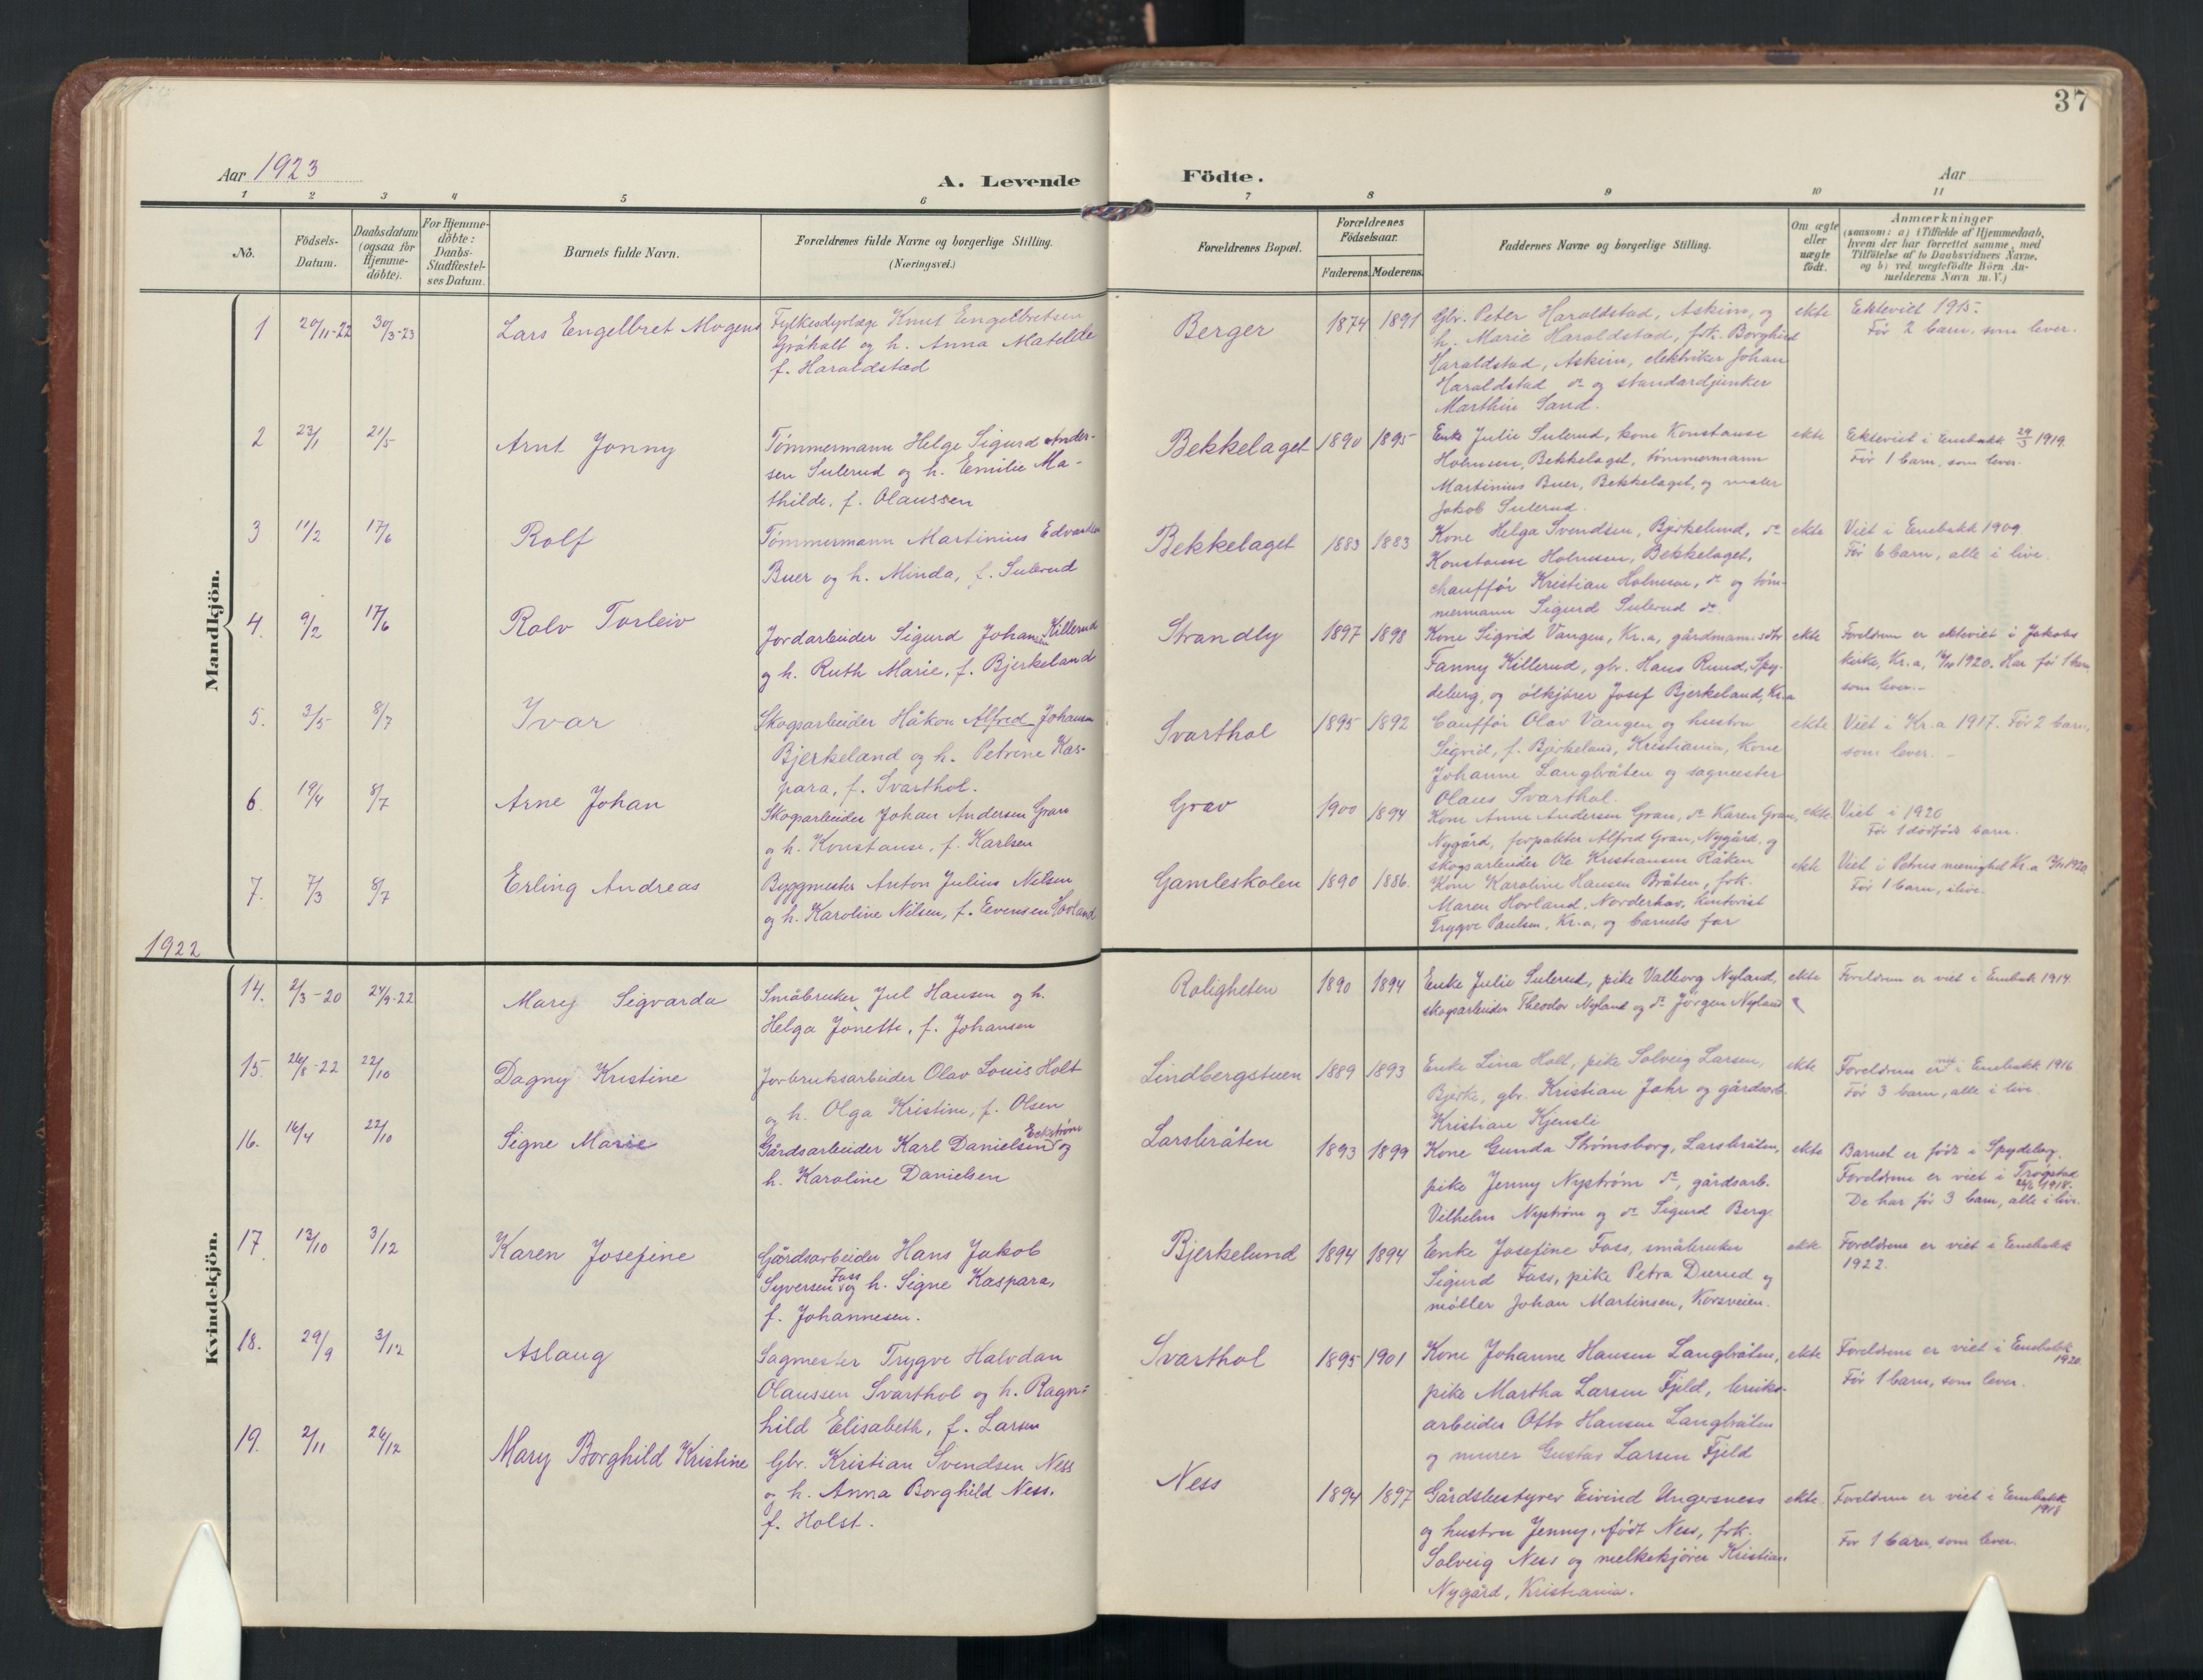 37
Aar 1923
A. Levende Födte.
Aar
1 2 3 4 5 6 7 8 9 10 11
No.
Födsels-
Datum.
Daabsdatum
(ogsaa for
Hjemme-
döbte).
For Hjemme-
döbte:
Daabs-
Stadfæstel-
ses Datum.
Barnets fulde Navn.
Forældrenes fulde Navne og borgerlige Stilling.
(Næringsvei.)
Forældrenes Bopæl.
Forældrenes
Födselsaar.
Faderens. Moderens.
Faddernes Navne og borgerlige Stilling.
Om ægte
eller
uægte
födt.
Anmærkninger
(saasom: a) i Tilfælde af Hjemmedaab,
hvem der har forrettet samme, med
Tilföielse af to Daabsvidners Navne,
og b) ved uægtefödte Börn An-
melderens Navn m. V.)
Mandkjön.
1 20/11-22 30/3-23 Lars Engelbret Mogens
Fylkesdyrlæge Knut Engelbretsen
Gråkalt og h. Anna Matelde
f. Haraldstad
Berger 1874 1891
Gbr. Peter Haraldstad, Askim, og
h. Marie Haraldstad, frk. Borghild
Haraldstad, Askim, elektriker Johan
Haraldstad do og standardjunker
Marthin Sand.
ekte
Ekteviet 1915.
Før 2 barn, som lever.
2 23/1 21/5 Arnt Jonny
Tømmermann Helge Sigurd Ander-
sen Sulerud og h. Emilie Ma-
thilde, f. Olaussen
Bekkelaget 1890 1895
Enke Julie Sulerud, kone Konstanse
Holmsen, Bekkelaget, tømmermann
Martinius Buer, Bekkelaget, og maler
Jakob Sulerud.
ekte
Ekteviet i Enebakk 29/3 1919.
Før 1 barn, som lever.
3 11/2 17/6 Rolf
Tømmermann Martinius Edvardsen
Buer og h. Minda, f. Sulerud
Bekkelaget 1883 1883
Kone Helga Svendsen, Bjerkelund, do
Konstanse Holmsen, Bekkelaget,
chauffør Kristian Holmsen, do og tøm-
mermann Sigurd Sulerud do
ekte
Viet i Enebakk 1909
Før 6 barn, alle i live.
4. 9/2 17/6 Rolv Torleiv
Jordarbeider Sigurd Johansen Killerud
og h. Ruth Marie, f. Bjerkeland
Strandly 1897 1898
Kone Sigrid Vangen, Kr.a, gårdmannsdtr
Fanny Killerud, gbr. Hans Ruud, Spy-
deberg, og ølkjører Josef Bjerkeland, Kr.a
ekte
Foreldrene er ekteviet i Jakobs
kirke, Kr.a, 1920. Har før 1 barn
som lever.-
5. 3/5 8/7 Ivar
Skogsarbeider Håkon Alfred Johansen
Bjerkeland og h. Petrine Kas-
para, f. Svarthol.
Svarthol 1895 1892
Cauffør Olav Vangen og hustru
Sigrid, f. Bjerkeland, Kristiania, kone
Johanne Langbråten og sagmester
Olaus Svarthol.
ekte
Viet i Kr.a 1917. Før 2 barn,
som lever.-
6. 19/4 8/7 Arne Johan
Skogsarbeider Johan Andersen Gran
og h. Konstanse, f. Karlsen
Grav 1900 1894
Kone Anna Andersen Gran, do Karen Gran,
Nygård, forpakter Alfred Gran, Nygård, og
skogsarbeider Ole Kristiansen Råken
ekte
Viet i 1920
Før 1 dødfødt barn.
7. 7/3 8/7 Erling Andreas
Byggmester Anton Julius Nilsen
og h. Karoline Nilsen, f. Evensen Hovland
Gamleskolen 1890 1886.
Kone Karoline Hansen Bråten, frk.
Maren Hovland, Norderhov, kontorist
Trygve Paulsen, Kr.a, og barnets far
ekte
Viet i Petrus menighet Kr.a 1920
Før 1 barn, i live.
1922
Kvindekjön.
14. 2/3-20 24/9-22 Mary Sigvarda
Småbruker Jul Hansen og h.
Helga Jonette, f. Johansen
Roligheten 1890 1894
Enke Julie Sulerud, pike Valborg Nyland,
skogsarbeider Theodor Nyland og do Jørgen Nyland
ekte
Foreldrene er viet i Enebak 1914
15. 26/8-22 22/10 Dagny Kristine
Jorbruksarbeider Olav Louis Holt
og h. Olga Kristine, f. Olsen
Lindbergstuen 1889 1893
Enke Lina Holt, pike Solveig Larsen,
Bjerke, gbr. Kristian Jahr og gårdsarb.
Kristian Kjensli
ekte
Foreldrene er viet i Enebakk 1916
Før 3 barn, alle i live.
16. 16/4 22/10 Signe Marie
Gårdsarbeider Karl Danielsen Eckstrøm og
h. Karoline Danielsen
Larsbråten 1893 1899
Kone Gunda Strømsborg, Larsbråten,
pike Jenny Nystrøm do, gårdsarb.
Vilhelm Nystrøm og do Sigurd Berg
ekte
Barnet er født i Spydeberg.
Foreldrene er viet i Trøgstad
1918.
De har før 3 barn, alle i live.
17 13/10 3/12 Karen Josefine
Gårdsarbeider Hans Jakob
Syversen Foss og h. Signe Kaspara,
f. Johannesen.
Bjerkelund 1894 1894
Enke Josefine Foss, småbruker
Sigurd Foss, pike Petra Durud og
møller Johan Martinsen, Korsveien.
ekte
Foreldrene er viet i Enebakk
1922.
18. 29/9 3/12 Aslaug
Sagmester Trygve Halvdan
Olaussen Svarthol og h. Ragn-
hild Elisabeth, f. Larsen
Svarthol 1895 1901
Kone Johanne Hansen Langbråten,
pike Martha Larsen Fjeld, bruks-
arbeider Otto Hansen Langbråten
og murer Gustav Larsen Fjeld
ekte
Foreldrene er viet i Enebakk
1920.
Før 1 barn, som lever.
19. 2/11 26/12 Mary Borghild Kristine
Gbr. Kristian Svendsen Ness
og h. Anna Borghild Ness,
f. Holst.
Ness 1894 1897
Gårdsbestyrer Eivind Ungersness
og hustru Jenny, født Ness, frk.
Solveig Ness og melkekjører Kristian
Nygård, Kristiania.
ekte.
Foreldrene er viet i Enebakk
1918
Før 1 barn, som lever.